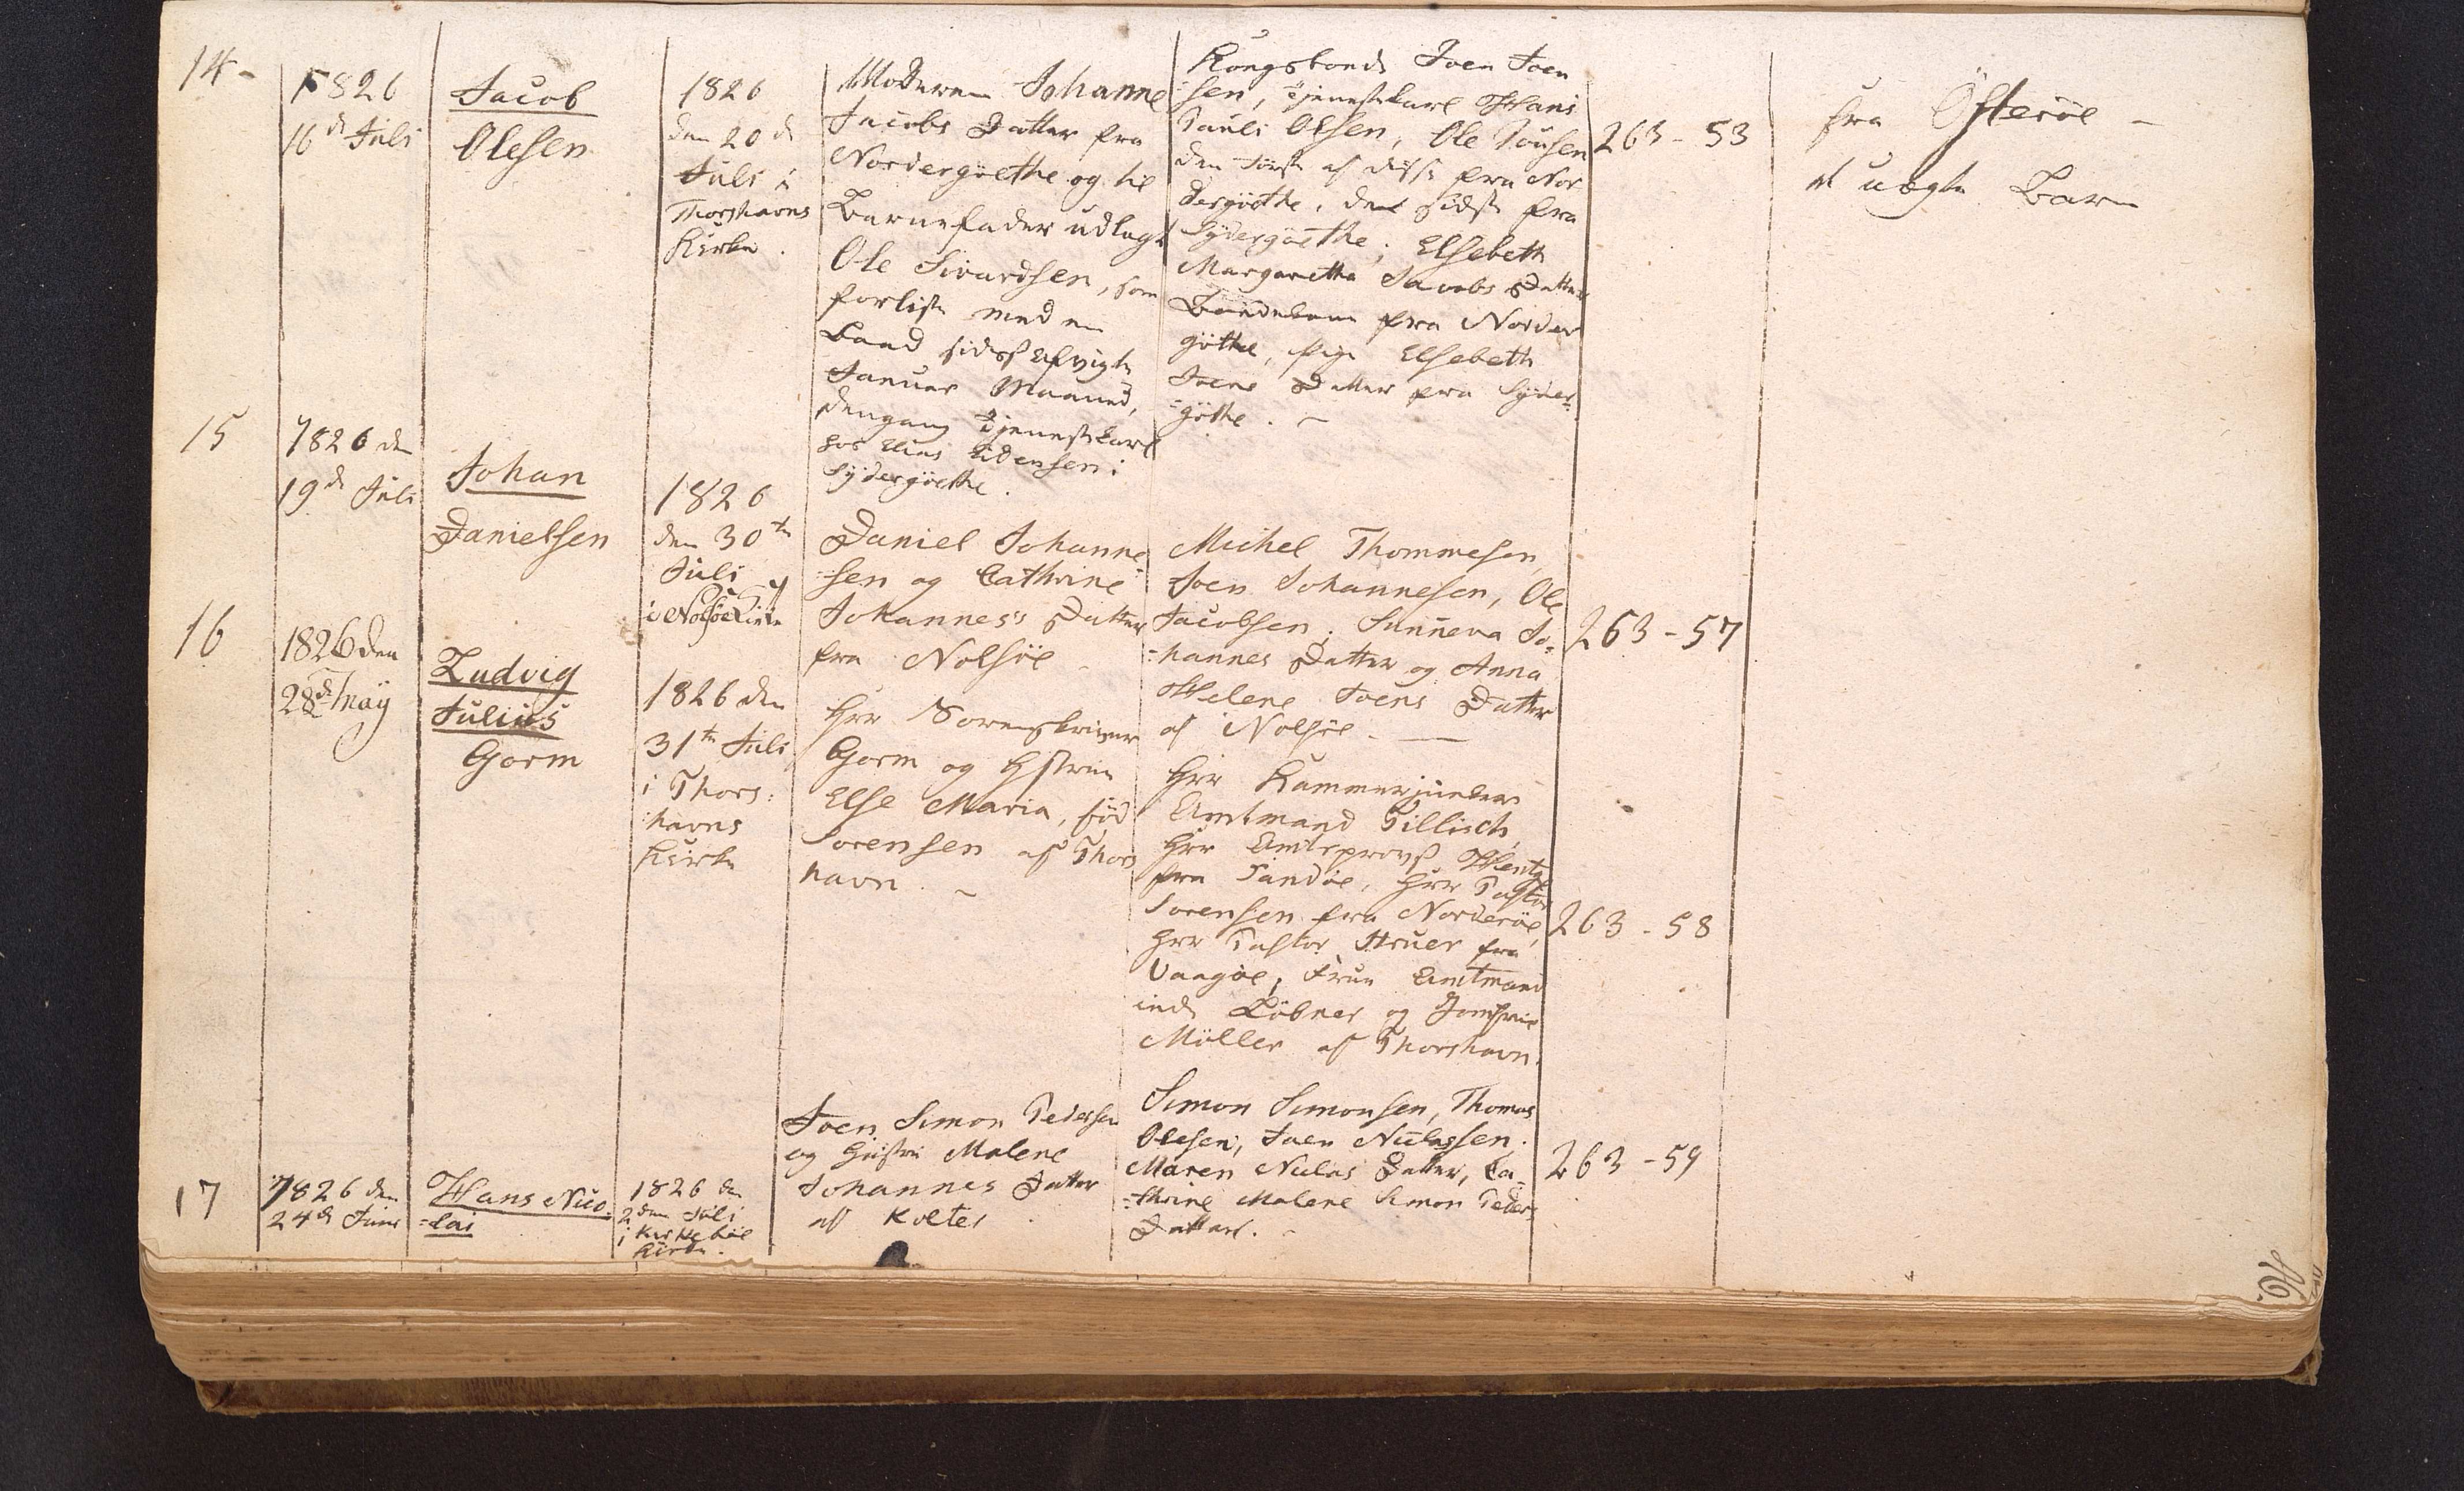 14-
1826
16de Juli
Jacob
Olesen
1826
den 20de
Juli i
Thorshavns
Kirke.
Moderen Johanne
Jacobs Datter fra
Nordergöethe og til
Barnefader udlagt
Ole Sivardsen, som
forliste med en
Baad sidst afvigte
Januar Maaned,
dengang Tjenestekarl
hos Elias
Sydergöethe.
Kongsbonde Joen Joen
sen, Tjenestekarl Hans
Pauli Olsen, Ole Poulsen
den første af disse fra Nor
dergöethe, den sidste fra
Sydergöethe; Elsebeth
Margaretha Jacobs Datter
Bondekone fra Norder
göthe, Pige Elsebeth
Joens Datter fra Syder-
=göthe. -
263 - 53
fra Østeröe -
et uægte Barn
15
1826 den
19de Juli
Johan
Danielsen
1826
den 30te
Juli
i Nolsöe Kirke
Daniel Johanne
=sen og Cathrine
Johannes's Datter
fra Nolsöe -
Michel Thommesen,
Joen Johannesen, Ole
Jacobsen; Sunneva Jo=
=hannes Datter og Anna
Helene Joens Datter
af Nolsöe. -
263 - 57
16
1826 den
28de May
Ludvig
Julius
Gorm
1826 den
31te Juli
i Thors:
havns
Kirke
Herr Sorenskriver
Gorm og Hustrue
Else Maria, föd
Sorensen af Thors
havn. -
Herr Kammerjunker
Amtmand Tillisch,
Herr Amtsprovst Hentze
fra Sandöe, Herr Pastor
Sorensen fra Norderöe,
Herr Pastor Struer fra
Vaagöe, Frue Amtmand
inde Löbner og Jomfrue
Möller af Thorshavn.
263 - 58
17
1826 den
24de Juni
Hans Nico=
=lai
1826 den
2den Juli
i Kirkeböe
Kirke.
Joen Simon Pedersen
og Hustrue Malene
Johannes Datter
af Kolter
Simon Simonsen, Thomas
Olesen, Joen Niclassen.
Maren Niclas Datter, Ca=
=thrine Malene Simon Peders
Datter. -
263 - 59